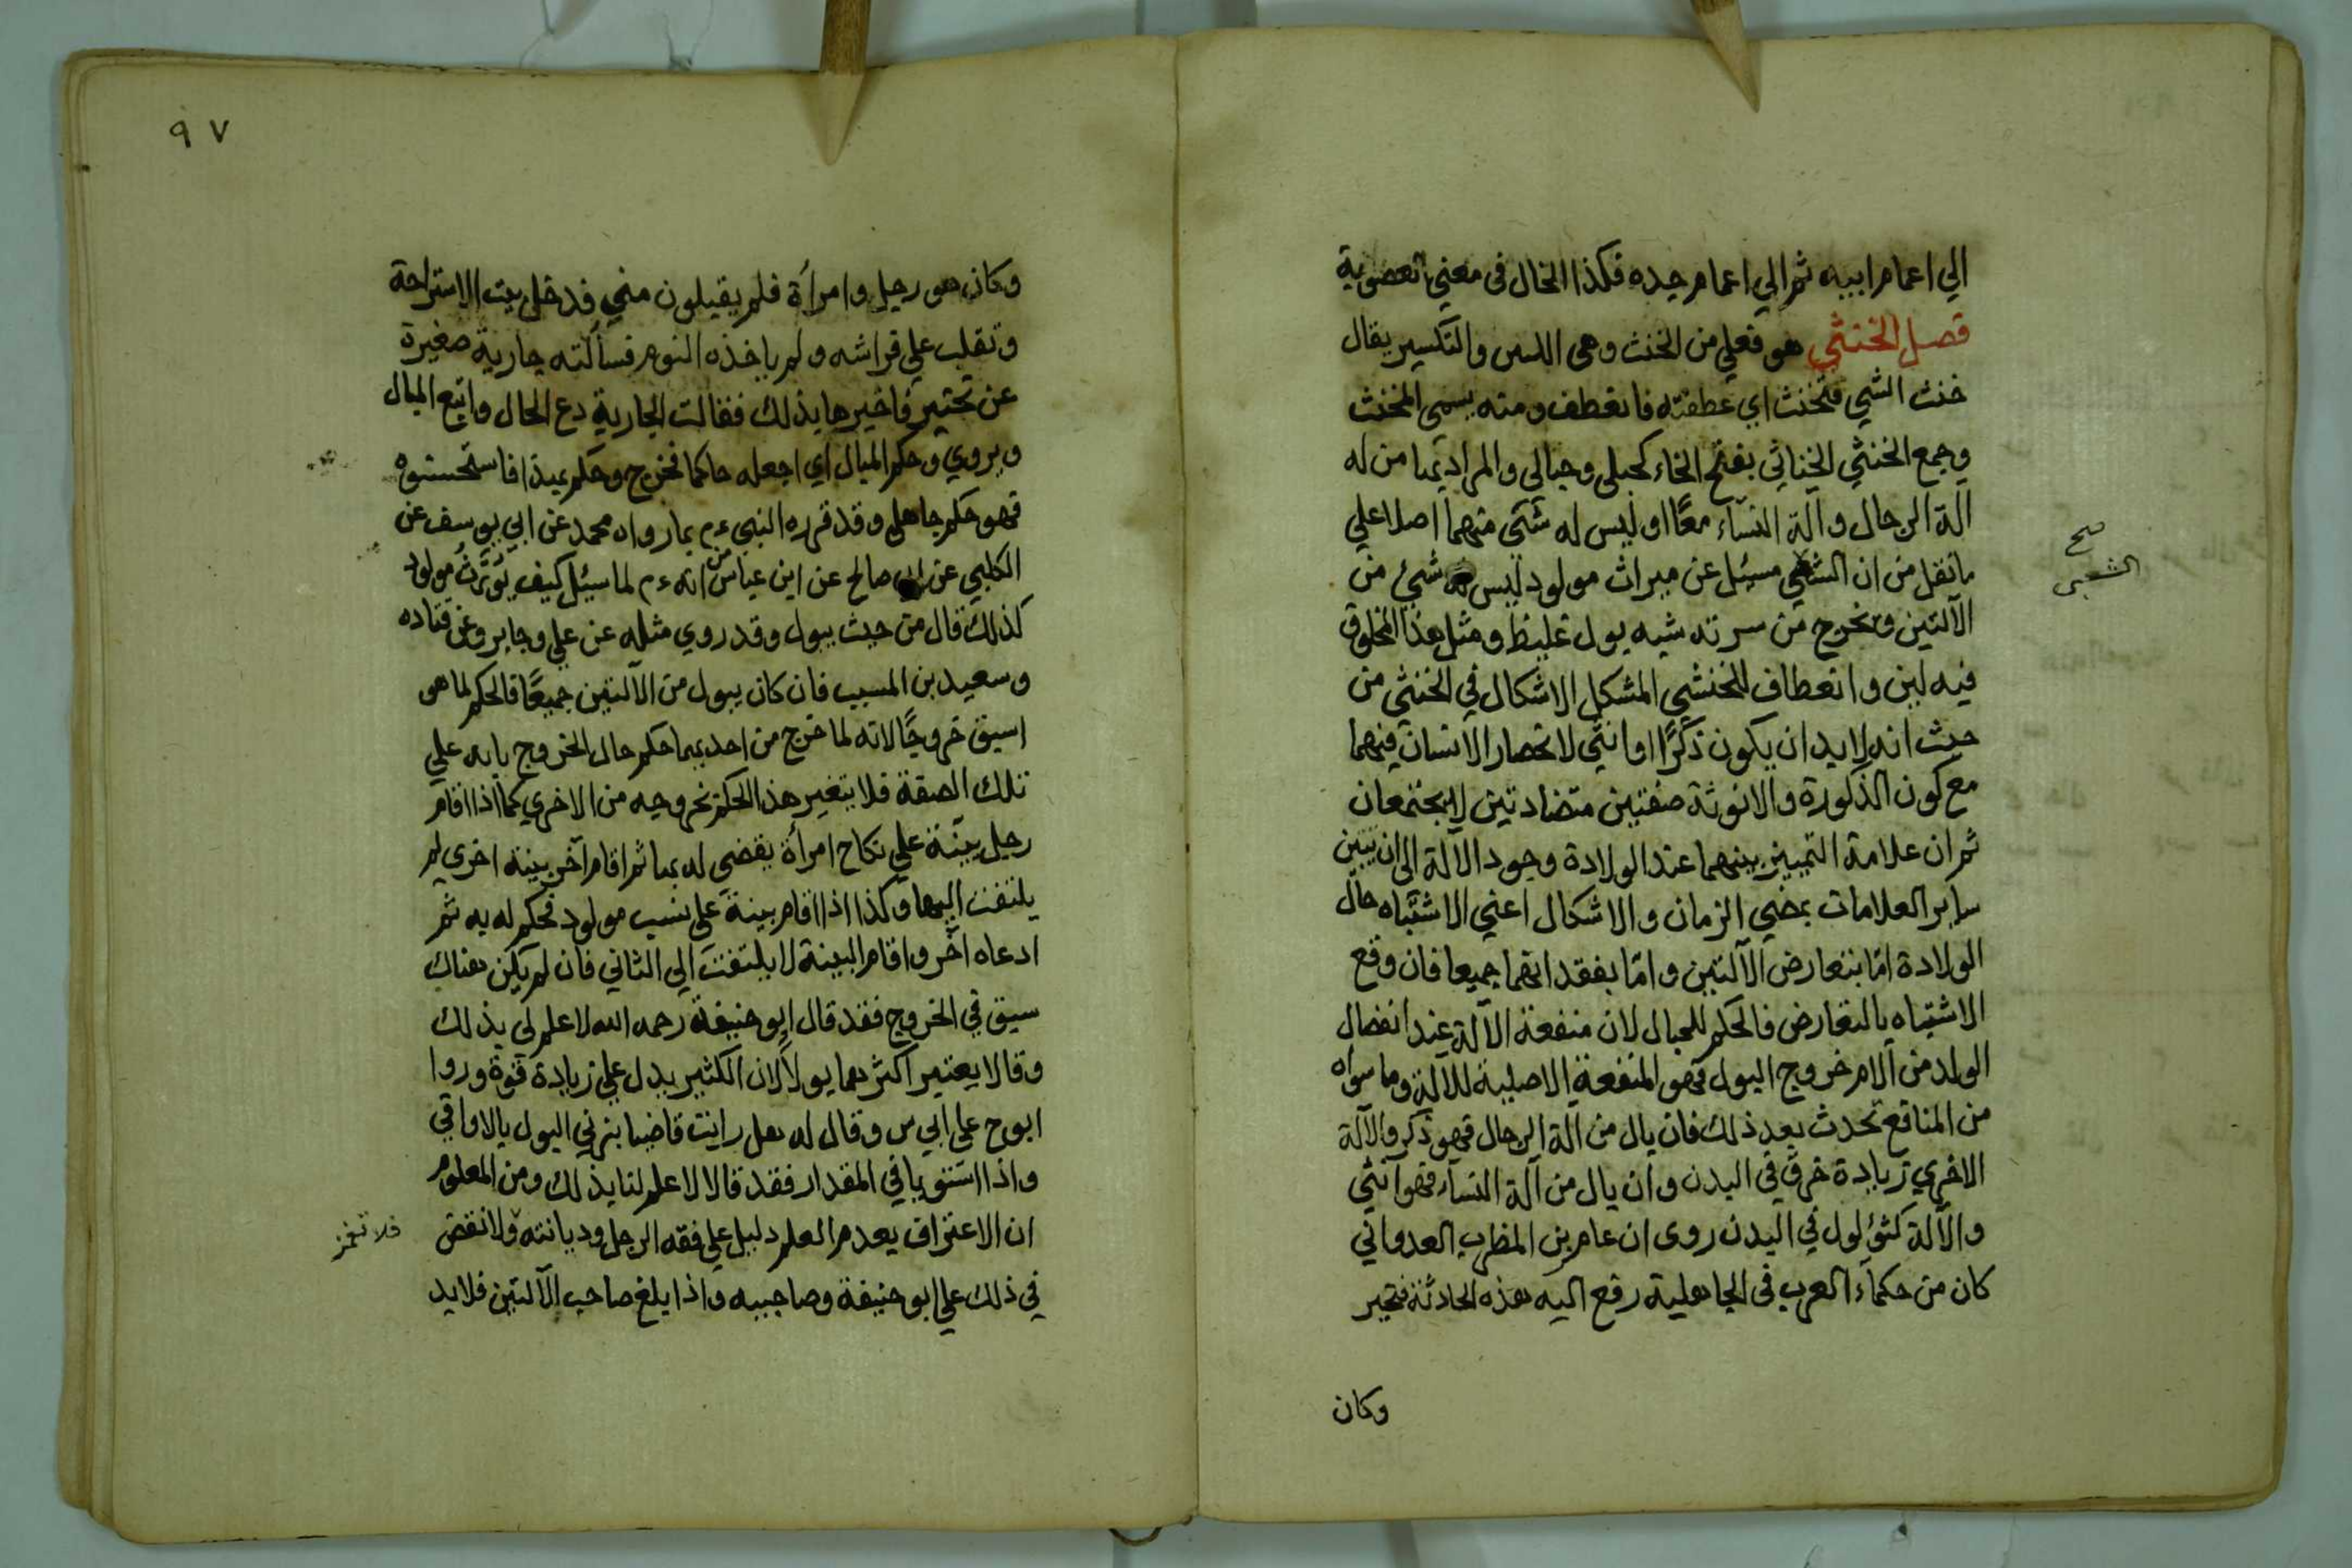 الي اعمام ابيه ثم الي اعمام جده فكذا الحال في معني العصوبة
فصل الخنثي هو فعلي من الخنث وهى اللين والتكسير يقال
خنث الشي فتخنث اي عطفته فانعطف ومنه يسمى المخنث
وجمع الخنثي الخناثي بفتح الخاء كحبلى وحبالي والمراد بها من له
آلة الرجال وآلة النسآء معًا او ليس له شئ منهما اصلا علي
ما نقل من ان الشعبي سئل عن ميراث مولود ليس له شئ من
صح
الشعبى
الآلتين ويخرج من سرته شبه بول غليظ ومثل هذا المخلوق
فيه لين وانعطاف للخنثي المشكل الاشكال في الخنثي من
حيث انه لابد ان يكون ذكرًا او انثي لانحصار الانسان فيهما
مع كون الذكورة والانوثة صفتين متضادتين لا يجتمعان
ثم ان علامة التمييز بينهما عند الولادة وجود الآلة الى ان يتبين
ساير العلامات بمضي الزمان والاشكال اعني الاشتباه حال
الولادة امّا بتعارض الآلتين وامّا بفقدانهما جميعا فان وقع
الاشتباه بالتعارض فالحكم للمبال لان منفعة الآلة عند انفصال
الولد من الام خروج البول فهو المنفعة الاصلية للآلة وما سواه
من المنافع تحدث بعد ذلك فان بال من آلة الرجال فهو ذكر والآلة
الاخري زيادة خرق في البدن وان بال من آلة النسآء فهو انثي
والآلة كثؤلول في البدن روى ان عامر بن الظرب العدواني
كان من حكمآء العرب في الجاهلية رفع اليه هذه الحادثة فتحير
وكان
٩٧
وكان هو رجل وامرأة فلم يقبلون مني فدخل بيت الاستراحة
وتقلب علي فراشه ولم ياخذه النوم فسألته جارية صغيرة
عن تحير فاخبرها بذلك فقالت الجارية دع الحال واتبع المبال
ويروي وحكم المبال اي اجعله حاكما فخرج وحكم بهذا فاستحسنوه
فهو حكم جاهلي وقد قرره النبي ءم بما رواه محمد عن ابي يوسف عن
الكلبي عن ابي صالح عن ابن عباس رض انه ءم لما سئل كيف يُوَرَّثُ مولود
كذلك قال من حيث يبول وقد روي مثله عن علي وجابر وعن قتاده
وسعيد بن المسيب فان كان يبول من الآلتين جميعًا فالحكم لما هو
اسبق خروجًا لانه لما خرج من احديهما حكم حال الخروج بانه علي
تلك الصفة فلا يتغير هذا الحكم بخروجه من الاخري كما اذا اقام
رجل بينة علي نكاح امرأة يقضي له بها ثم اقام آخر بينة اخري لم
يلتفت اليها وكذا اذا اقام بينة علي نسب مولود فحكم له به ثم
ادعاه آخر واقام البينة لا يلتفت الي الثاني فان لم يكن هناك
سبق في الخروج فقد قال ابو حنيفة رحمه الله لا علم لي بذلك
وقالا يعتبر اكثرهما بولا لان الكثير يدل علي زيادة قوة وروا
ابو ح علي ابي س وقال له هل رايت قاضيا يزني البول بالاواقي
واذا استويا في المقدار فقد قالا لا علم لنا بذلك ومن المعلوم
ان الاعتراف بعدم العلم دليل علي فقه الرجل وديانته ولا نقض
في ذلك علي ابو حنيفة وصاحبيه واذا بلغ صاحب الآلتين فلابد